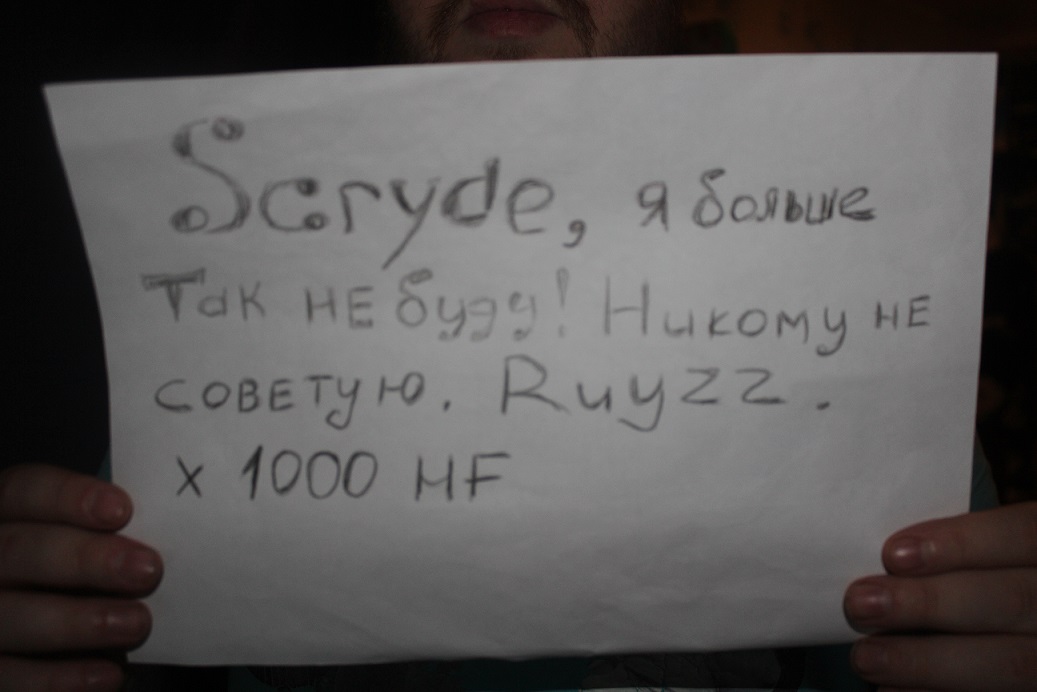 Scryde, я больше
Так не буду! Никому не
советую. Ruyzz.
x 1000 HF